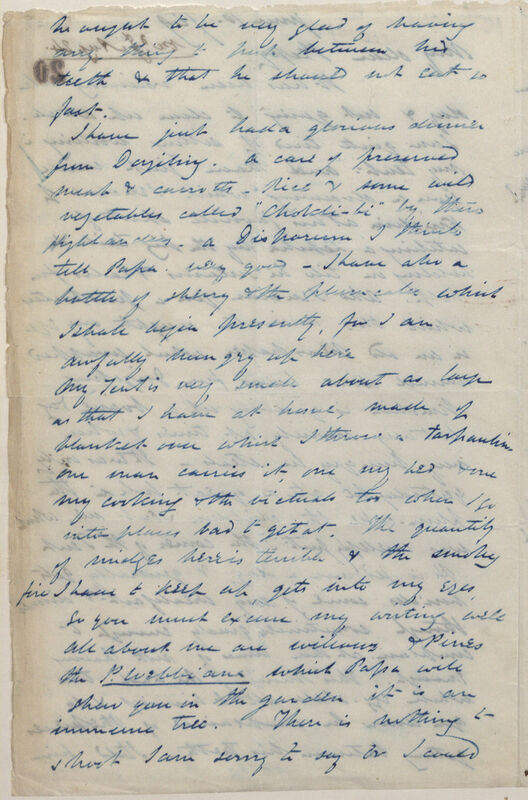 he ought to be very glad of having
any thing to put between his
teeth & that he should not eat so
fast.
20
I have just had a glorious dinner
from Dorjiling. a case of preserved
meat & carrots - Rice & some wild
vegetables called "Choldi-bi" by these
Highlanders - a Disporum I think
tell Papa. very good - I have also a
bottle of sherry & the plum cake which
I shall begin presently, for I am
awfully hungry up here
My Tent is very small about as large
as that I have at home, made of
blanket over which I throw a Tarpaulin
one man carries it, one my bed & one
my cooking & the victuals too when I go
into places bad to get at. The quantity
of midges here is terrible & the smokey
fire I have to keep up, gets into my eyes
So you must excuse my writing well
all about me are willows & Pines
the P. Webbiana which Papa will
shew you in the garden it is an
immense tree. There is nothing to
shoot I am sorry to say or I could